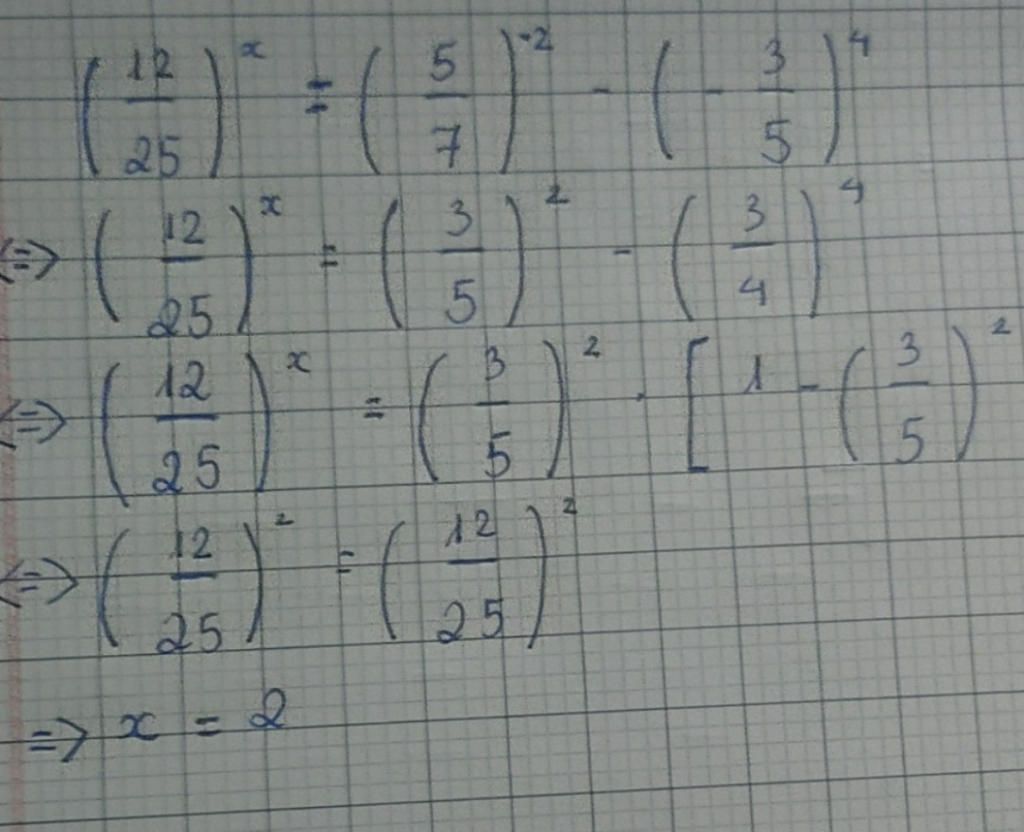 (12/25)^x = (5/7)^-2 - (- 3/5)^4
<=> (12/25)^x = (3/5)^2 - (3/4)^4
<=> (12/25)^x = (3/5)^2 . [1 - (3/5)^2
<=> (12/25)^2 = (12/25)^2
=> x = 2